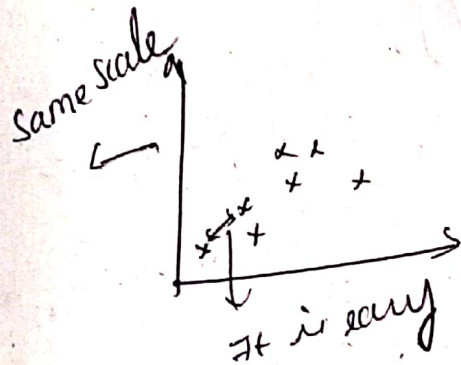 same scale
It is easy